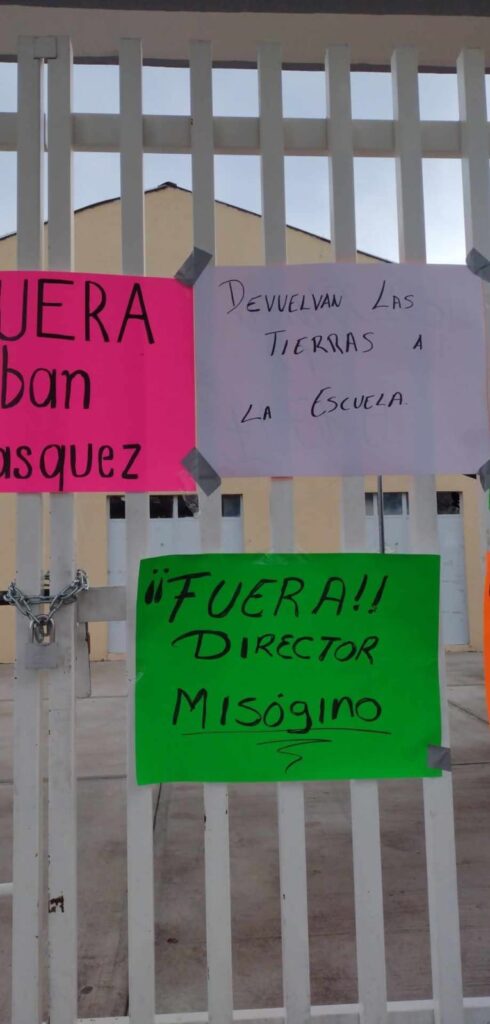 UERA
ban
asquez
DEVUELVAN LAS
TIERRAS A
LA ESCUELA.
¡¡FUERA!!
DIRECTOR
MISÓGINO